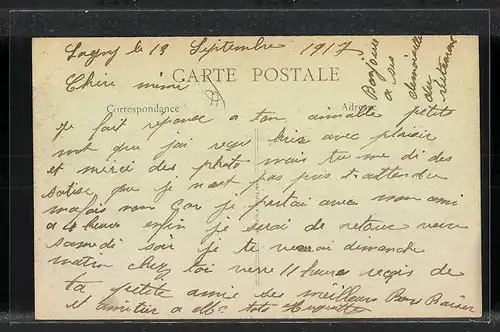 Lagny le 13 Septembre 1917
Chère mimi
CARTE POSTALE
Correspondance
Adresse
Bonjour
a ses
demoiselle
du
Je fait reponse a ton aimable petits
mot que j'ai reçu hier avec plaisir
et merci des photo mais tu me di des
sotise que je n'est pas pus t'attendre
mafois non car je partai avec mon ami
a 4 heures enfin je serai de retour vers
samedi soir je te verrai dimanche
matin chez toi vers 11 heures reçois de
ta petite amie ses meilleurs Bons Baiser
et amitier a